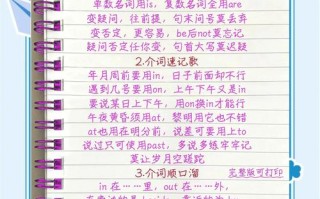 单数名词用is，复数名词全用are
变疑问，往前提，句末问号莫丢弃
变否定，更容易，be后not莫忘记
疑问否定任你变，句首大写莫迟疑
2.介词速记歌
年月周前要用in，日子前面却不行
遇到几号要用on，上午下午又是in
要说某日上下午，用on换in才能行
午夜黄昏须用at，黎明用它也不错
at也用在明分前，说差可要用上to
说过只可使用past，多说多练牢牢记
莫让岁月空蹉跎
3.介词顺口溜 完整版可打印
in 在……里，out 在……外，